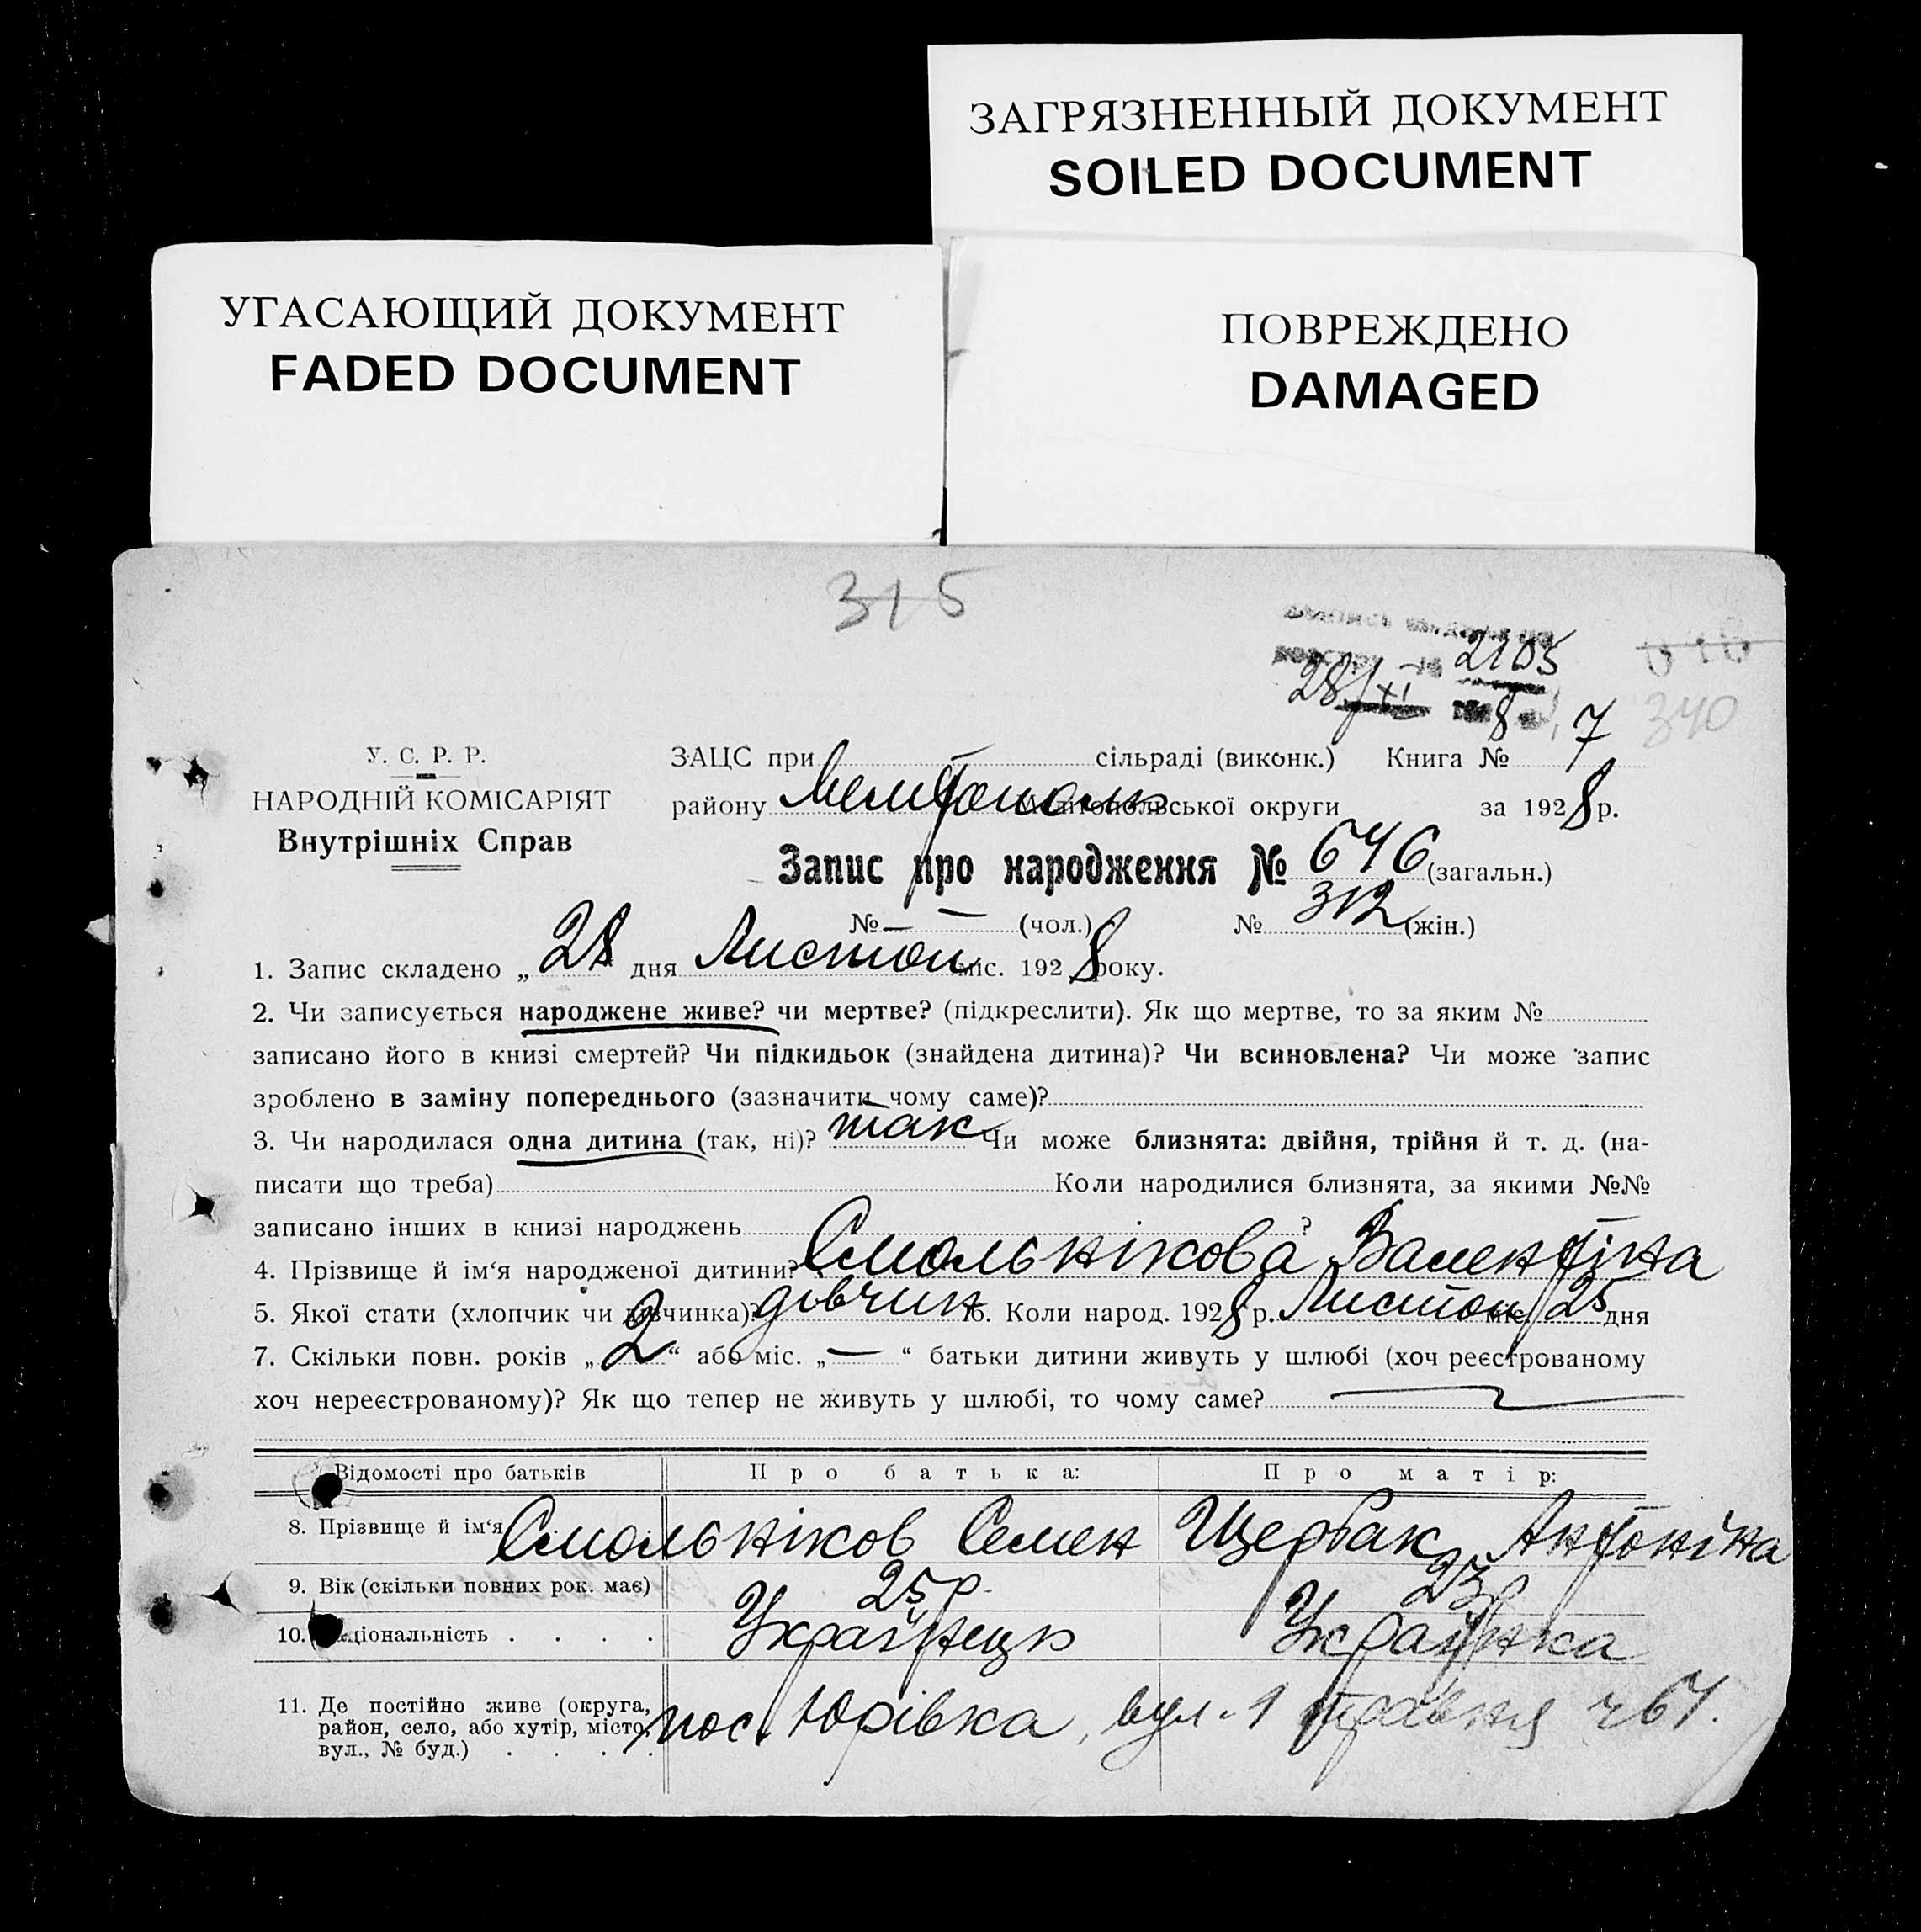 ЗАГРЯЗНЕННЫЙ ДОКУМЕНТ
SOILED DOCUMENT
УГАСАЮЩИЙ ДОКУМЕНТ
FADED DOCUMENT
ПОВРЕЖДЕНО
DAMAGED
315
2105
28/XI 8
340
У. С. Р. Р.
НАРОДНІЙ КОМІСАРІЯТ
Внутрішніх Справ
ЗАЦС при сільраді (виконк.) Книга № 7
району Мелітопольської округи за 1928 р.
Запис про народження № 646 (загальн.)
№ — (чол.) № 312 (жін.)
1. Запис складено „28" дня Листоп міс. 1928 року.
2. Чи записується народжене живе? чи мертве? (підкреслити). Як що мертве, то за яким №
записано його в книзі смертей? Чи підкидьок (знайдена дитина)? Чи всиновлена? Чи може запис
зроблено в заміну попереднього (зазначити чому саме)?
3. Чи народилася одна дитина (так, ні)? так Чи може близнята: двійня, трійня й т. д. (на-
писати що треба) Коли народилися близнята, за якими №№
записано інших в книзі народжень ?
4. Прізвище й ім‘я народженої дитини? Смольнікова Валентіна
5. Якої стати (хлопчик чи дівчинка)? дівчин 6. Коли народ. 1928 р. Листоп міс. 25 дня
7. Скільки повн. років „2“ або міс. „—“ батьки дитини живуть у шлюбі (хоч реєстрованому
хоч нереєстрованому)? Як що тепер не живуть у шлюбі, то чому саме?
Відомості про батьків Про батька: Про матір:
8. Прізвище й ім‘я Смольніков Семен Щербак Антоніна
9. Вік (скільки повних рок. має) 25 р. 23 р
10. Національність . . . . Українець Українка
11. Де постійно живе (округа,
район, село, або хутір, місто,
вул., № буд.) . . . .
пос. Юрівка, вул. 1 травня ч 67.